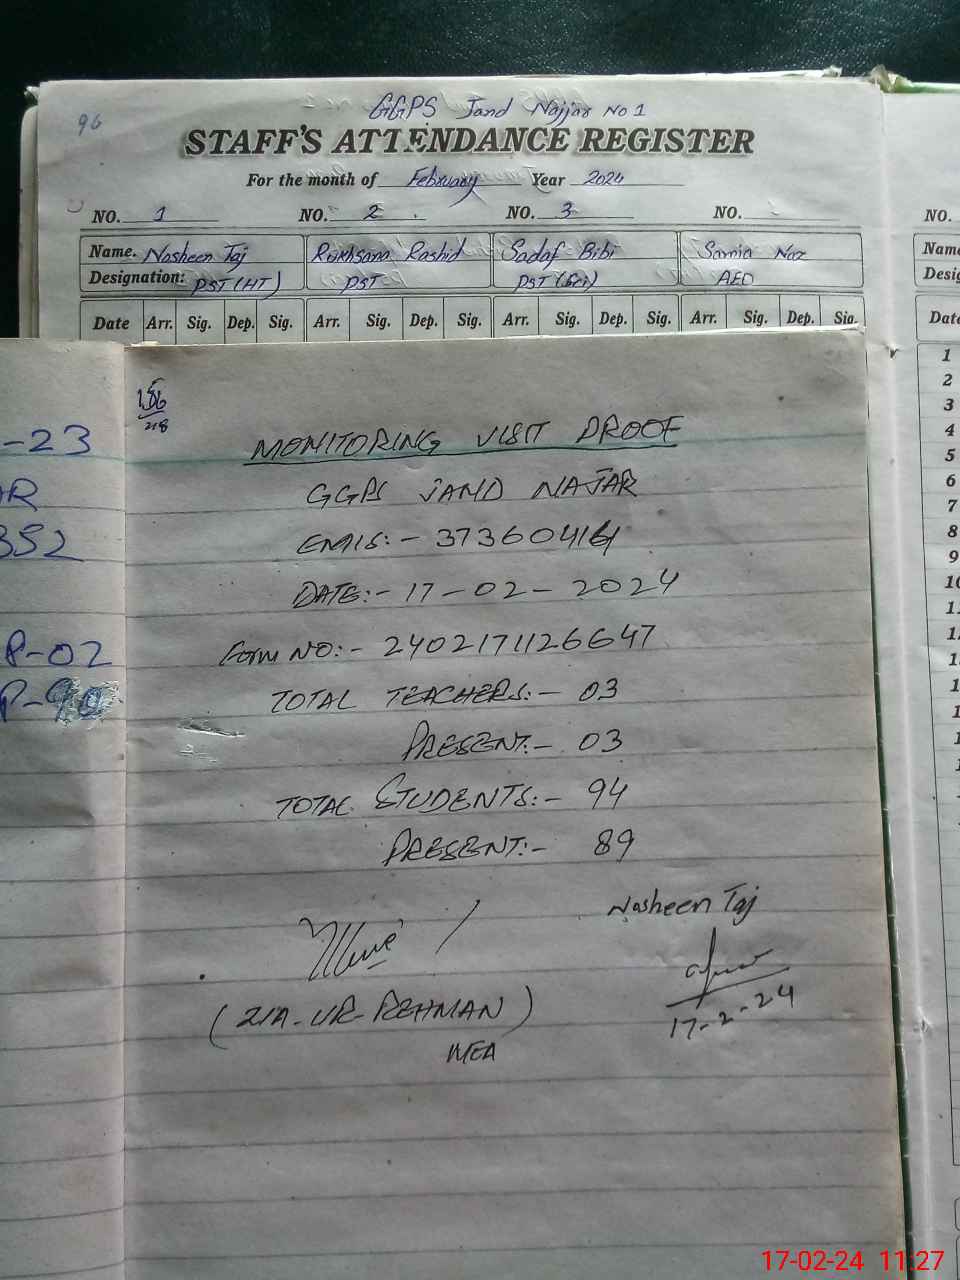 96
GGPS Jand Najjar No 1
STAFF'S ATTENDANCE REGISTER
For the month of February Year 2024
NO. 1 NO. 2 NO. 3 NO. NO.
Name. Nosheen Taj Rukhsana Rashid Sadaf Bibi Samia Naz
Designation: PST (HT) PST PST (Sci) AEO
Date Arr. Sig. Dep. Sig. Arr. Sig. Dep. Sig. Arr. Sig. Dep. Sig. Arr. Sig. Dep. Sig.
1
2
3
4
5
6
7
8
9
10
-23
352
P-02
MONITORING VISIT PROOF
GGPS JAND NAJAR
EMIS:- 37360414
DATE:- 17-02-2024
Form NO:- 2402171126647
TOTAL TEACHERS:- 03
PRESENT:- 03
TOTAL STUDENTS:- 94
PRESENT:- 89
Nosheen Taj
17-2-24
(ZIA-UR-REHMAN)
MEA
17-02-24 11:27